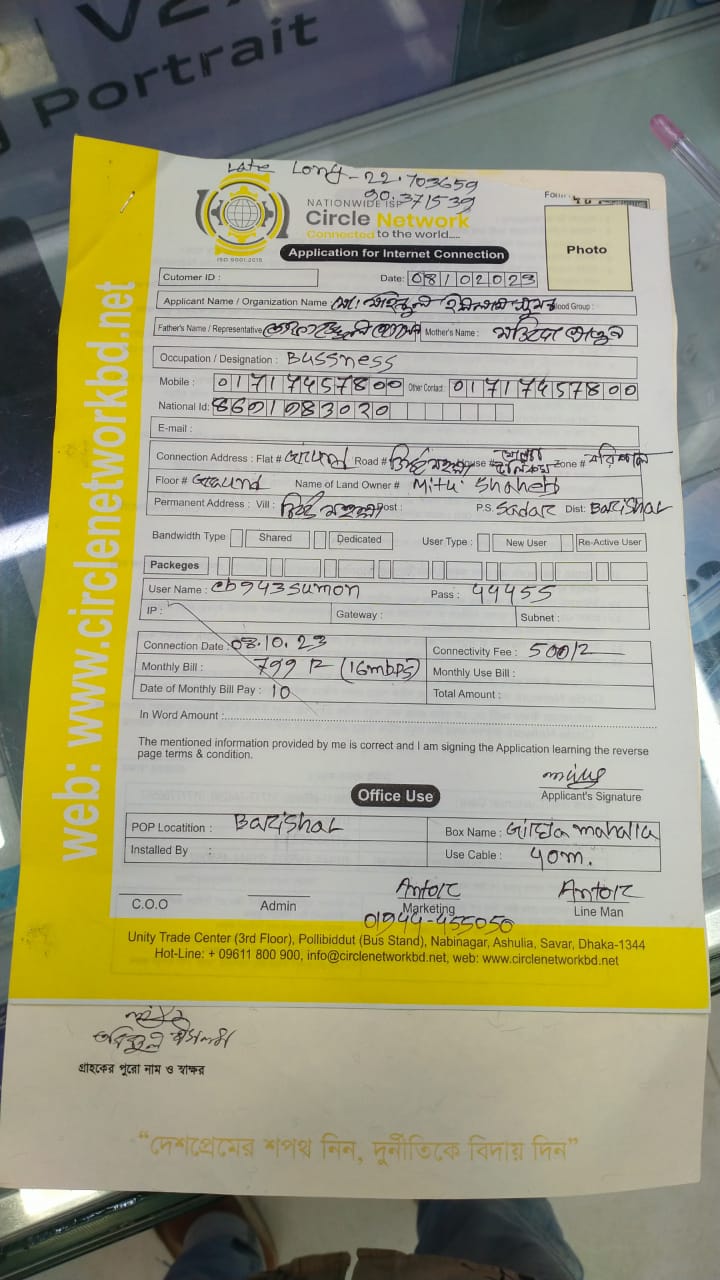 Portrait
Late Long - 22.703659
90.371539
NATIONWIDE ISP
Circle Network
Connected to the world.....
ISO 9001:2015
Form
Application for Internet Connection
Photo
Cutomer ID :
Date: 08/02023
Applicant Name / Organization Name মো: Blood Group :
Father's Name / Representative Mother's Name :
Occupation / Designation : Bussness
Mobile : 01717457800 Other Contact : 01717457800
National Id: 8601083020
E-mail :
Connection Address : Flat # Road # House # Zone # বরিশাল
Floor # Graund Name of Land Owner # Mitu Shaheb
Permanent Address : Vill : Post : P.S. Sadar Dist: Barishal
Bandwidth Type Shared Dedicated User Type : New User Re-Active User
Packeges
User Name : cb943sumon Pass : 44455
IP : Gateway : Subnet :
Connection Date : 08.10.23 Connectivity Fee : 500/2
Monthly Bill : 799 (16mbps) Monthly Use Bill :
Date of Monthly Bill Pay : 10 Total Amount :
In Word Amount :
The mentioned information provided by me is correct and I am signing the Application learning the reverse
page terms & condition.
Applicant's Signature
Office Use
POP Locatition : Barishal Box Name : mahalla
Installed By : Use Cable : 40m.
Antor Antor
C.O.O Admin Marketing Line Man
01944-455050
Unity Trade Center (3rd Floor), Pollibiddut (Bus Stand), Nabinagar, Ashulia, Savar, Dhaka-1344
Hot-Line: + 09611 800 900, info@circlenetworkbd.net, web: www.circlenetworkbd.net
web: www.circlenetworkbd.net
গ্রাহকের পুরো নাম ও স্বাক্ষর
“দেশপ্রেমের শপথ নিন, দুর্নীতিকে বিদায় দিন”